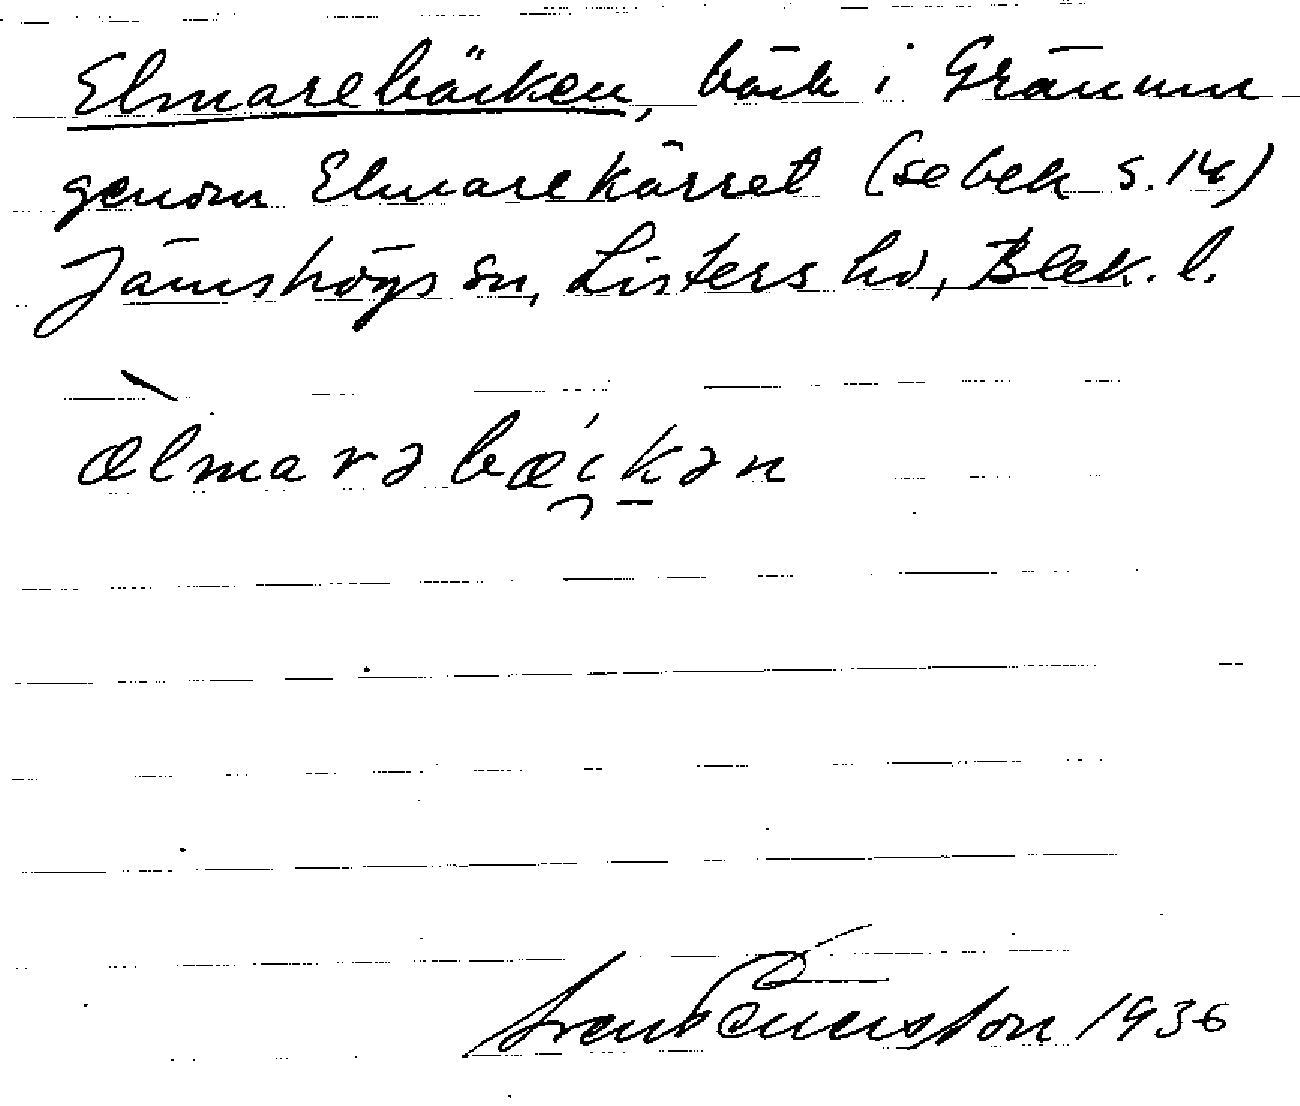 Elmarebäcken, bäck i Gränum
genom Elmarekärret (se bek s. 14)
Jämshögs sn, Listers hd, Blek. l.
ælmarəbæikən
1936